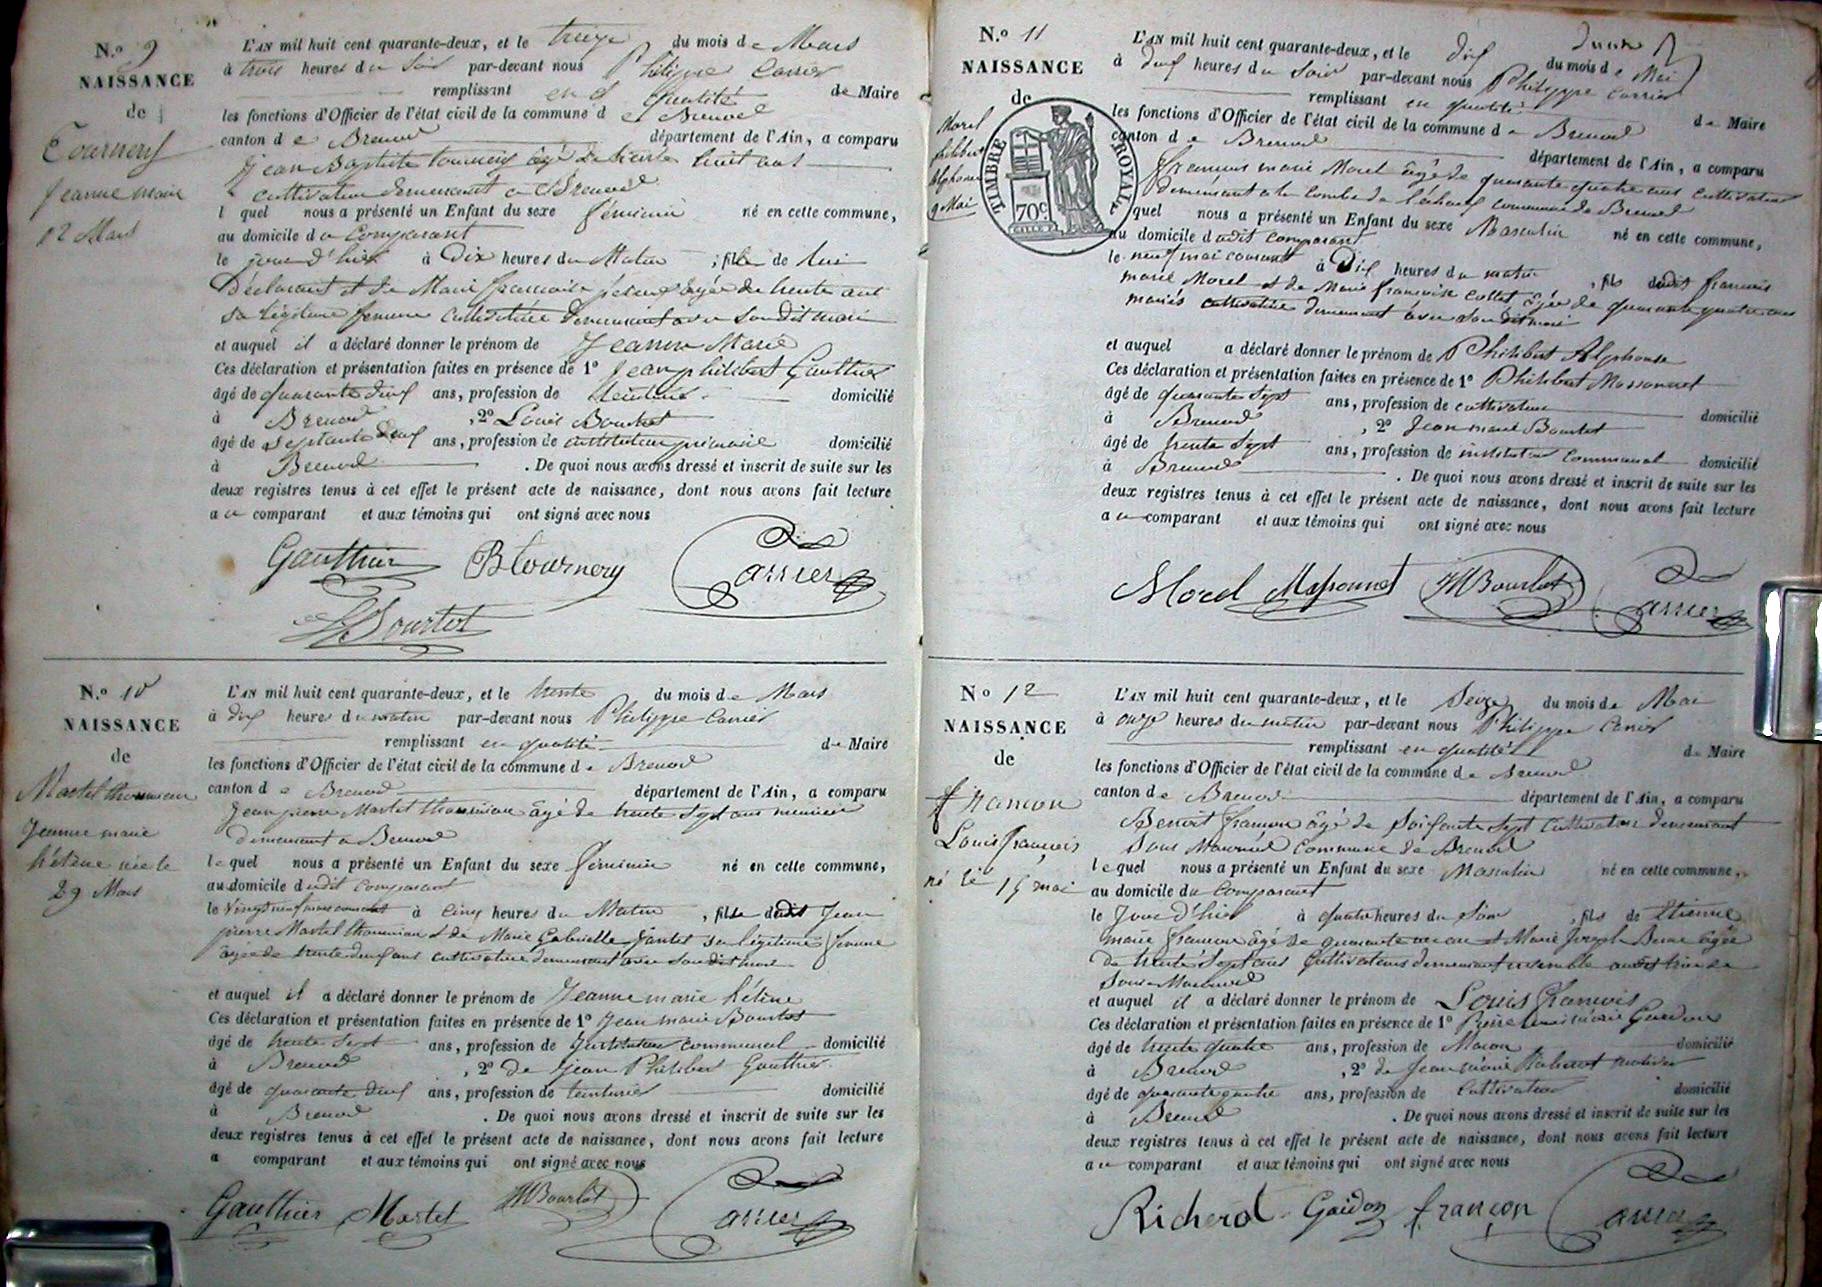 N.o 9
NAISSANCE
de
Tournery
Jeanne marie
12 Mars
L'AN mil huit cent quarante-deux, et le treize du mois de Mars
à trois heures du soir par-devant nous Philippe Carrier
remplissant en qualité de Maire
les fonctions d'Officier de l'état civil de la commune d e Brenod
canton d e Brenod département de l'Ain, a comparu
Jean Baptiste tournery âgé de trente huit ans
cultivateur demeurant a Brenod
l quel nous a présenté un Enfant du sexe féminin né en cette commune,
au domicile du Comparant
le jour d'hier à Dix heures du Matin ; fille de lui
Déclarant et de Marie françoise âgée de trente ans
sa légitime femme cultivatrice demeurant avec son dit mari
et auquel il a déclaré donner le prénom de Jeanne Marie
Ces déclaration et présentation faites en présence de 1° Jean philibert Gauthier
âgé de quarante deux ans, profession de teinturier domicilié
à Brenod , 2° Louis Bourlot
âgé de septante deux ans, profession de instituteur primaire domicilié
à Brenod . De quoi nous avons dressé et inscrit de suite sur les
deux registres tenus à cet effet le présent acte de naissance, dont nous avons fait lecture
a u comparant et aux témoins qui ont signé avec nous
Gauthier B Tournery Carrier
L Bourlot
N.o 10
NAISSANCE
de
Martel thoumian
Jeanne marie
hélène née le
29 Mars
L'AN mil huit cent quarante-deux, et le trente du mois de Mars
à dix heures du matin par-devant nous Philippe Carrier
remplissant en qualité de Maire
les fonctions d'Officier de l'état civil de la commune d e Brenod
canton d e Brenod département de l'Ain, a comparu
Jean pierre Martel thoumian âgé de trente sept ans
demeurant a Brenod
le quel nous a présenté un Enfant du sexe féminin né en cette commune,
au domicile dudit comparant
le vingt neuf mars courant à cinq heures du Matin , fille dudit Jean
pierre Martel thoumian et de Marie Gabrielle sa légitime femme
âgée de trente deux ans cultivatrice demeurant avec son dit mari
et auquel il a déclaré donner le prénom de Jeanne marie hélène
Ces déclaration et présentation faites en présence de 1° Jean marie Bourlot
âgé de trente sept ans, profession de Instituteur communal domicilié
à Brenod , 2° de Jean Philibert Gauthier
âgé de quarante deux ans, profession de teinturier domicilié
à Brenod . De quoi nous avons dressé et inscrit de suite sur les
deux registres tenus à cet effet le présent acte de naissance, dont nous avons fait lecture
a comparant et aux témoins qui ont signé avec nous
Gauthier Martel JM Bourlot Carrier
N.o 11
NAISSANCE
de
Morel
philibert
Alphonse
9 Mai
TIMBRE ROYAL
70c
L'AN mil huit cent quarante-deux, et le dix du mois d e Mai
à deux heures du soir par-devant nous Philippe Carrier
remplissant en qualité de Maire
les fonctions d'Officier de l'état civil de la commune d e Brenod
canton d e Brenod département de l'Ain, a comparu
françois marie Morel âgé de quarante quatre ans cultivateur
demeurant a la Combe de commune de Brenod
quel nous a présenté un Enfant du sexe Masculin né en cette commune,
au domicile dudit comparant
le neuf mai courant à Dix heures du matin , fils dudit françois
marie Morel et de Marie françoise collet âgée de quarante quatre ans
mariés cultivatrice demeurant avec son dit mari
et auquel a déclaré donner le prénom de Philibert Alphonse
Ces déclaration et présentation faites en présence de 1° Philibert Massonnet
âgé de quarante sept ans, profession de cultivateur domicilié
à Brenod , 2° Jean marie Bourlot
âgé de trente sept ans, profession de instituteur communal domicilié
à Brenod . De quoi nous avons dressé et inscrit de suite sur les
deux registres tenus à cet effet le présent acte de naissance, dont nous avons fait lecture
a u comparant et aux témoins qui ont signé avec nous
Morel Massonnet JM Bourlot Carrier
N° 12
NAISSANCE
de
françon
Louis françois
né le 15 mai
L'AN mil huit cent quarante-deux, et le Seize du mois de Mai
à onze heures du matin par-devant nous Philippe Carrier
remplissant en qualité de Maire
les fonctions d'Officier de l'état civil de la commune de Brenod
canton de Brenod département de l'Ain, a comparu
Benoit françon âgé de Soixante Sept cultivateur demeurant
Sous commune de Brenod
le quel nous a présenté un Enfant du sexe Masculin né en cette commune,
au domicile du Comparant
le Jour d'hier à quatre heures du Soir , fils de Etienne
marie françon âgé de quarante et Marie Joseph âgée
de trente Sept ans Cultivateurs demeurant ensemble
Sous
et auquel il a déclaré donner le prénom de Louis françois
Ces déclaration et présentation faites en présence de 1° Guidon
âgé de trente quatre ans, profession de Maçon domicilié
à Brenod , 2° de Jean marie Richerot
âgé de quarante quatre ans, profession de Cultivateur domicilié
à Brenod . De quoi nous avons dressé et inscrit de suite sur les
deux registres tenus à cet effet le présent acte de naissance, dont nous avons fait lecture
a u comparant et aux témoins qui ont signé avec nous
Richerol Gaidon françon Carrier